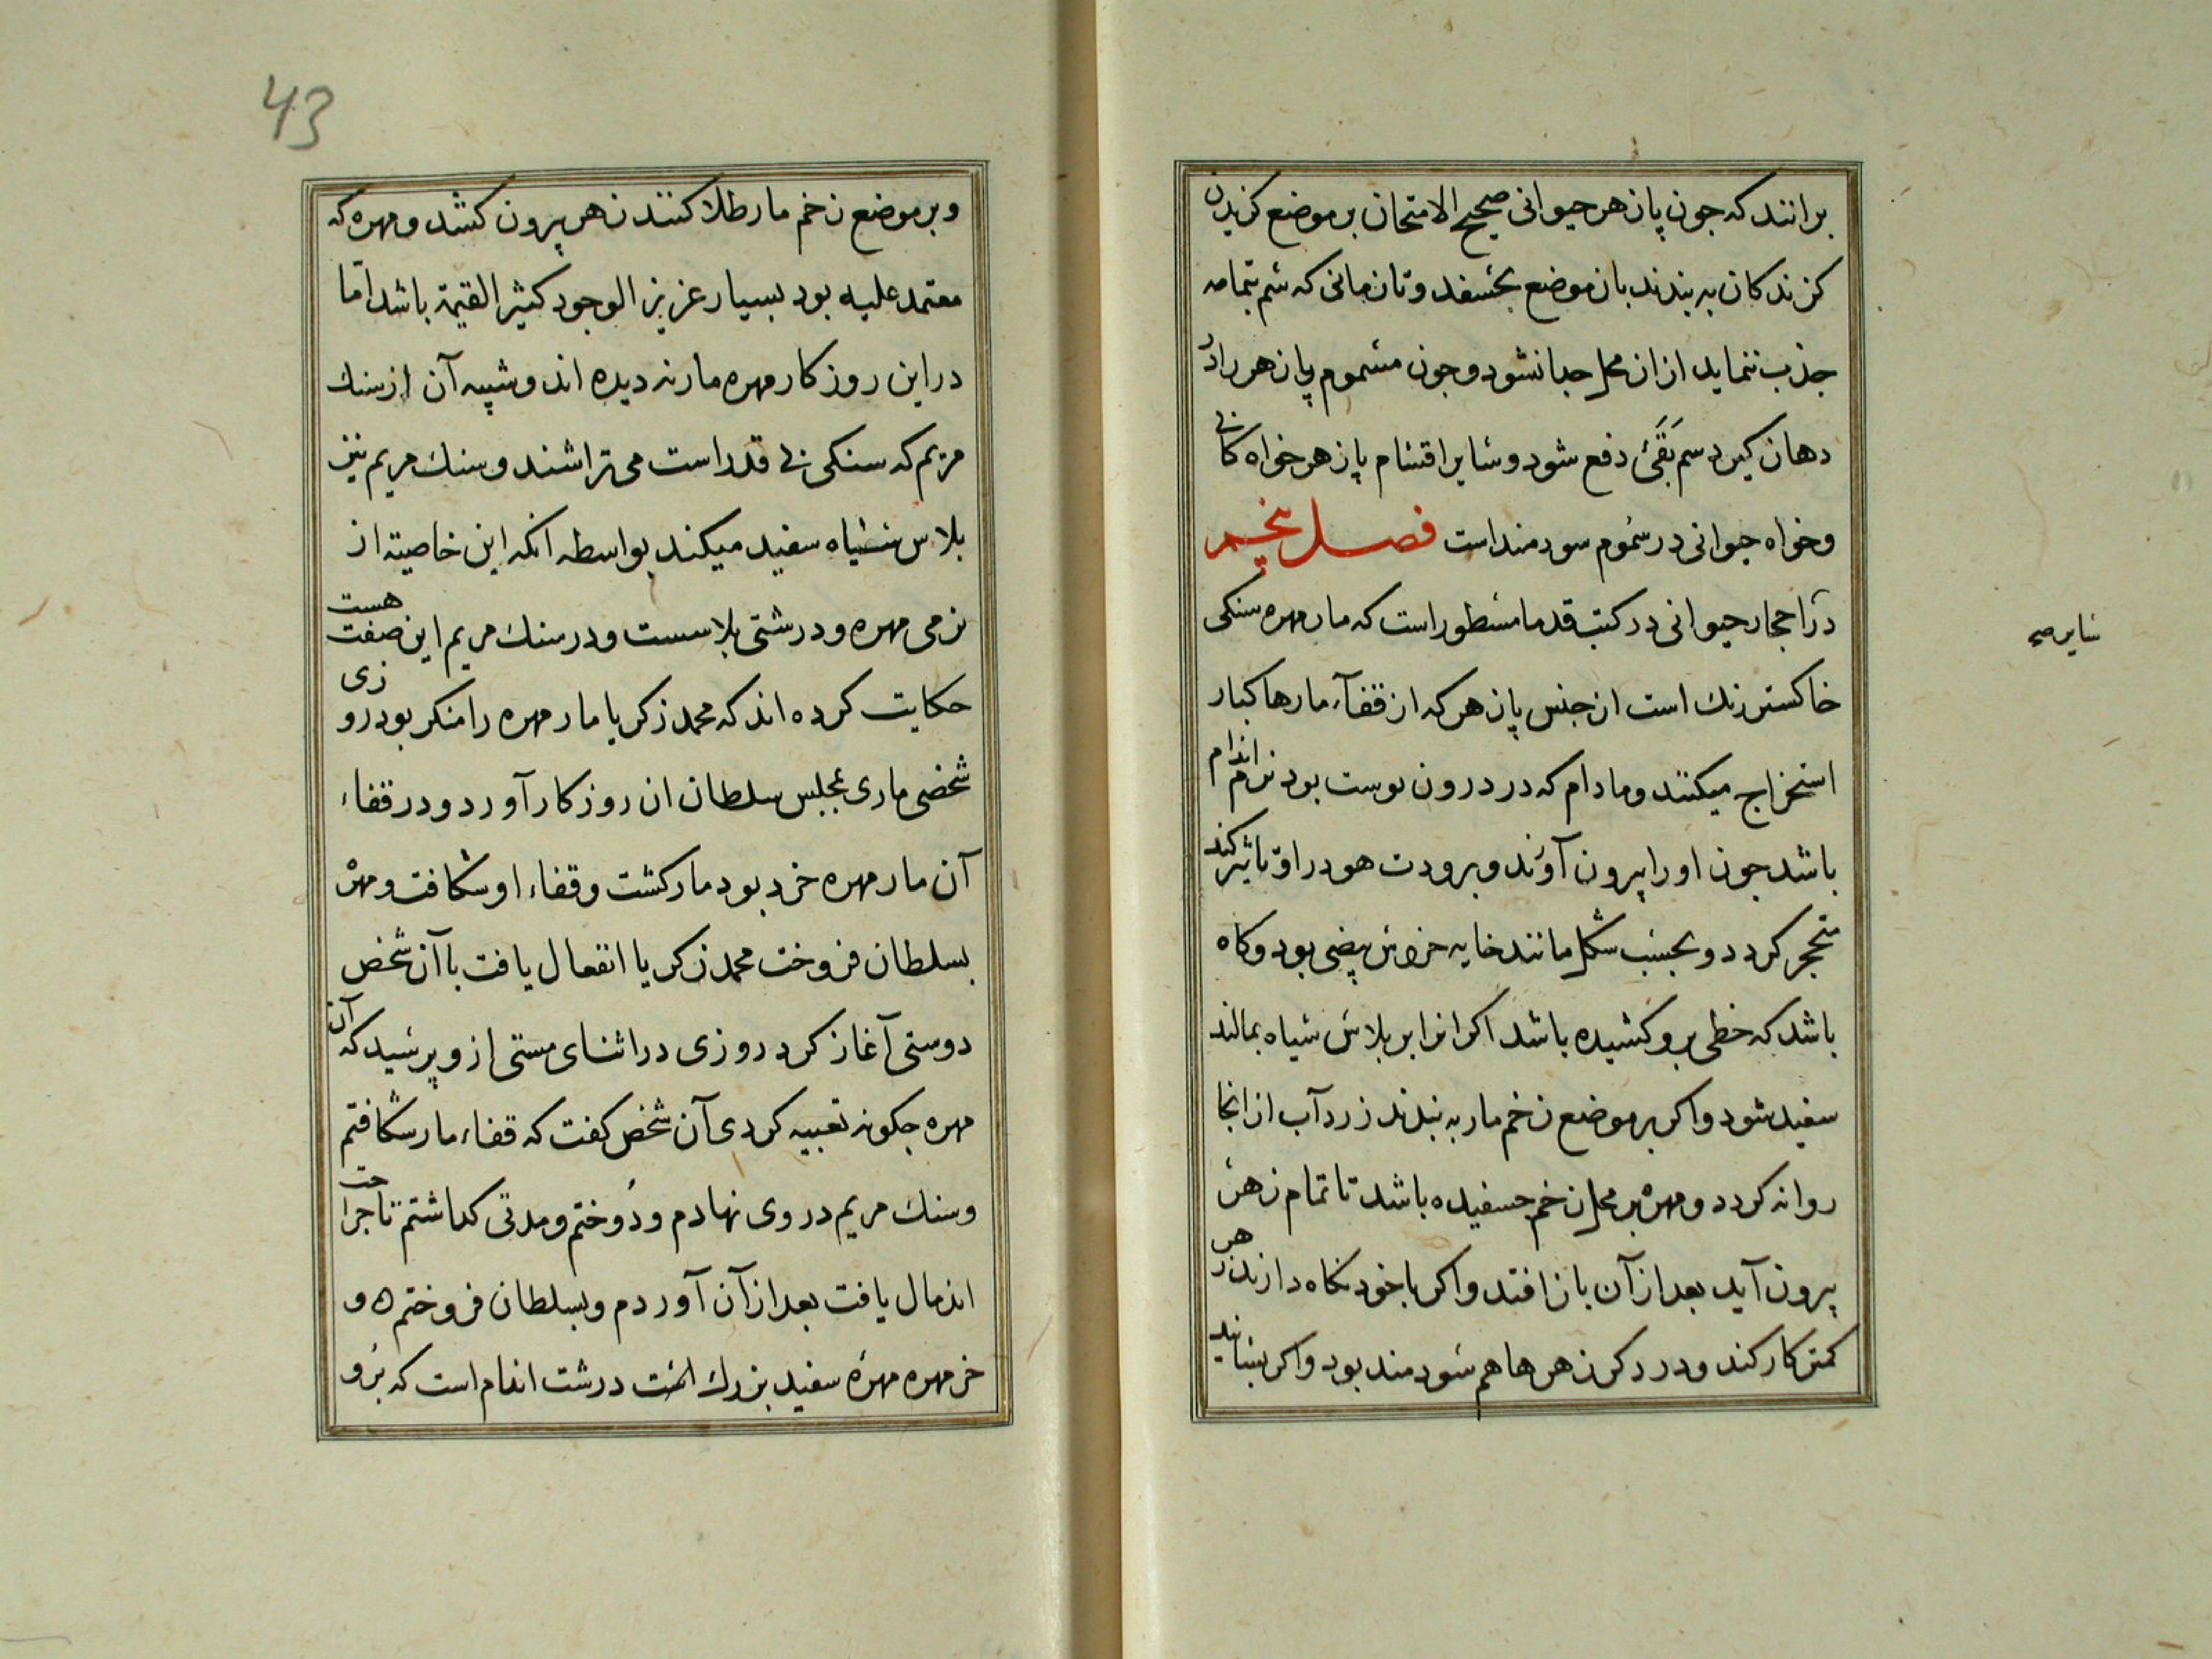 برانند که جون پازهر حیوانی صحیح الامتحان بر موضع کزیدن
کزندکان به بندند بان موضع بجسفد و تا زمانی که سم بتمامه
جذب ننماید ازان محل جدا نشود و جون مسموم پازهر را در
دهان کیرد سم بَقَئ دفع شود و سایر اقسام پازهر خواه کانی
و خواه حیوانی در سموم سودمند است فصل پنجم
در احجار حیوانی در کتب قدما مسطور است که مار مهره سنکی
خاکستر رنك است از جنس پازهر که از قفآء مارها کبار
استخراج میکنند و مادام که در درون پوست بود نرم اندام
باشد جون او را پیرون آورند و برودت هو در او تاثیر کند
متحجر کردد و بحسب شکل مانند خایه خروس بیضی بود و کاه
باشد که خطی برو کشیده باشد اکر انرا بر بلاس سیاه بمالند
سفید شود و اکر بر موضع زخم مار به بندند زرد آب از انجا
روانه کردد و مهره بر محل زخم جسفیده باشد تا تمام زهر
پیرون آید بعد از آن باز افتد و اکر با خود نکاه دارند زهر
کمتر کار کند و در دکر زهرها هم سودمند بود و اکر بسایند
سایر صح
43
و بر موضع زخم مار طلا کنند زهر پیرون کشد و مهره که
معتمد علیه بود بسیار عزیز الوجود کثیر القیمة باشد امّا
در این روزکار مهره مار نه دیده اند و شبیه آن از سنك
مریم که سنکی بی قدر است می تراشند و سنك مریم نیز
بلاس سیاه سفید میکند بواسطه انکه این خاصیته از
نرمی مهره و درشتی بلاسست و در سنك مریم این صفت هست
حکایت کرده اند که محمد زکریا مار مهره را منکر بود روزی
شخصی ماری بمجلس سلطان ان روزکار آورد و در قفاء
آن مار مهره خرد بود مار کشت و قفاء او شکافت و مهره
بسلطان فروخت محمد زکریا انفعال یافت با آن شخص
دوستی آغاز کرد روزی در اثنای مستی از و پرسید که آن
مهره جکونه تعبیه کردی آن شخص کفت که قفاء مار شکافتم
و سنك مریم در وی نهادم و دُوختم و مدتی کداشتم تا جراحت
اندمال یافت بعد از آن آوردم و بسلطان فروختم ه و
خر مهره مهرهٔ سفید بزرك است درشت اندام است که برو